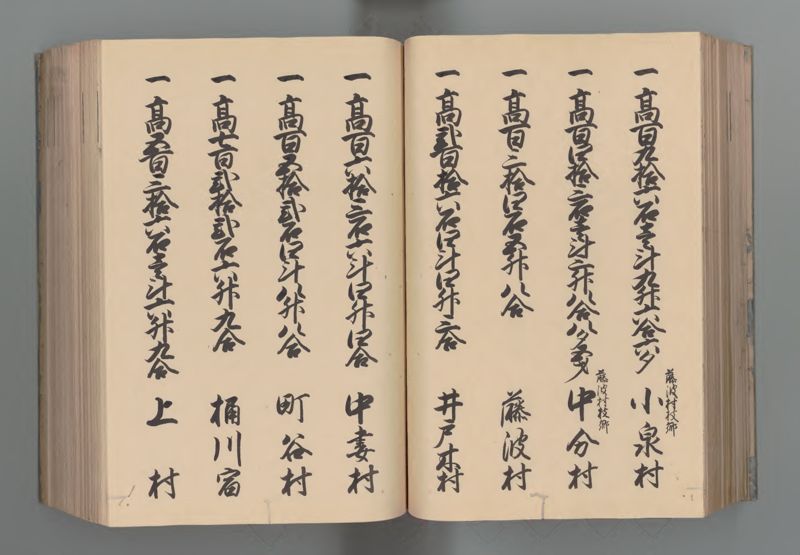 一高百九拾六石壱斗九升六合六夕
藤波村枝郷
小泉村
一高百四拾三石壱斗三升八合八夕
藤波村枝郷
中分村
一高百三拾四石五升八合
藤波村
一高弐百拾六石四斗四升三合
井戸木村
一高百六拾三石六斗四升四合
中妻村
一高百五拾弐石四斗八升八合
町谷村
一高七百弐拾弐石六升九合
桶川宿
一高五百三拾六石壱斗六升九合
上村